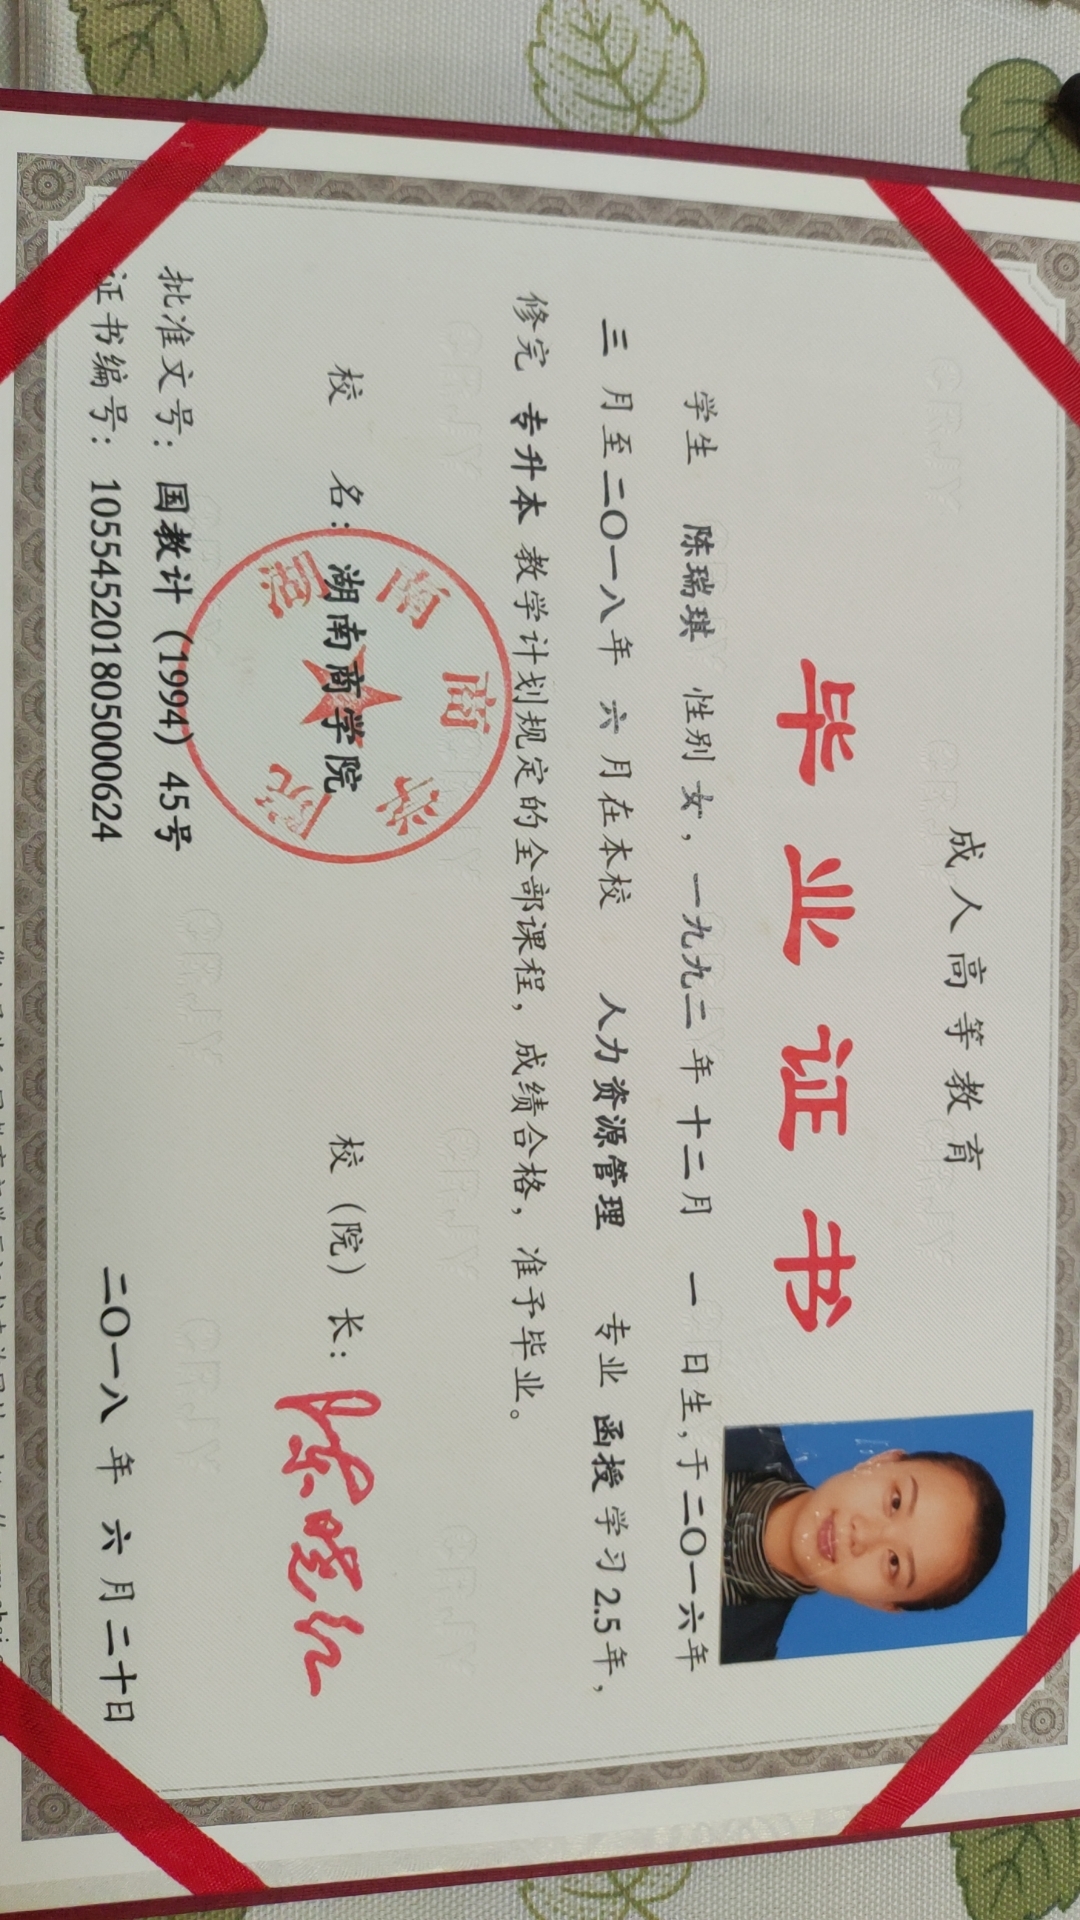 成人高等教育
毕业证书
学生 陈瑞琪 性别 女，一九九二年 十二月 一 日生，于二〇一六年
三 月至二〇一八年 六 月在本校 人力资源管理 专业 函授 学习 2.5 年，
修完 专升本 教学计划规定的全部课程，成绩合格，准予毕业。
校 名：湖南商学院
校（院）长：陈晓红
湖南商学院
批准文号：国教计（1994）45号
证书编号：105545201805000624
二〇一八 年 六 月二十日
CRJY